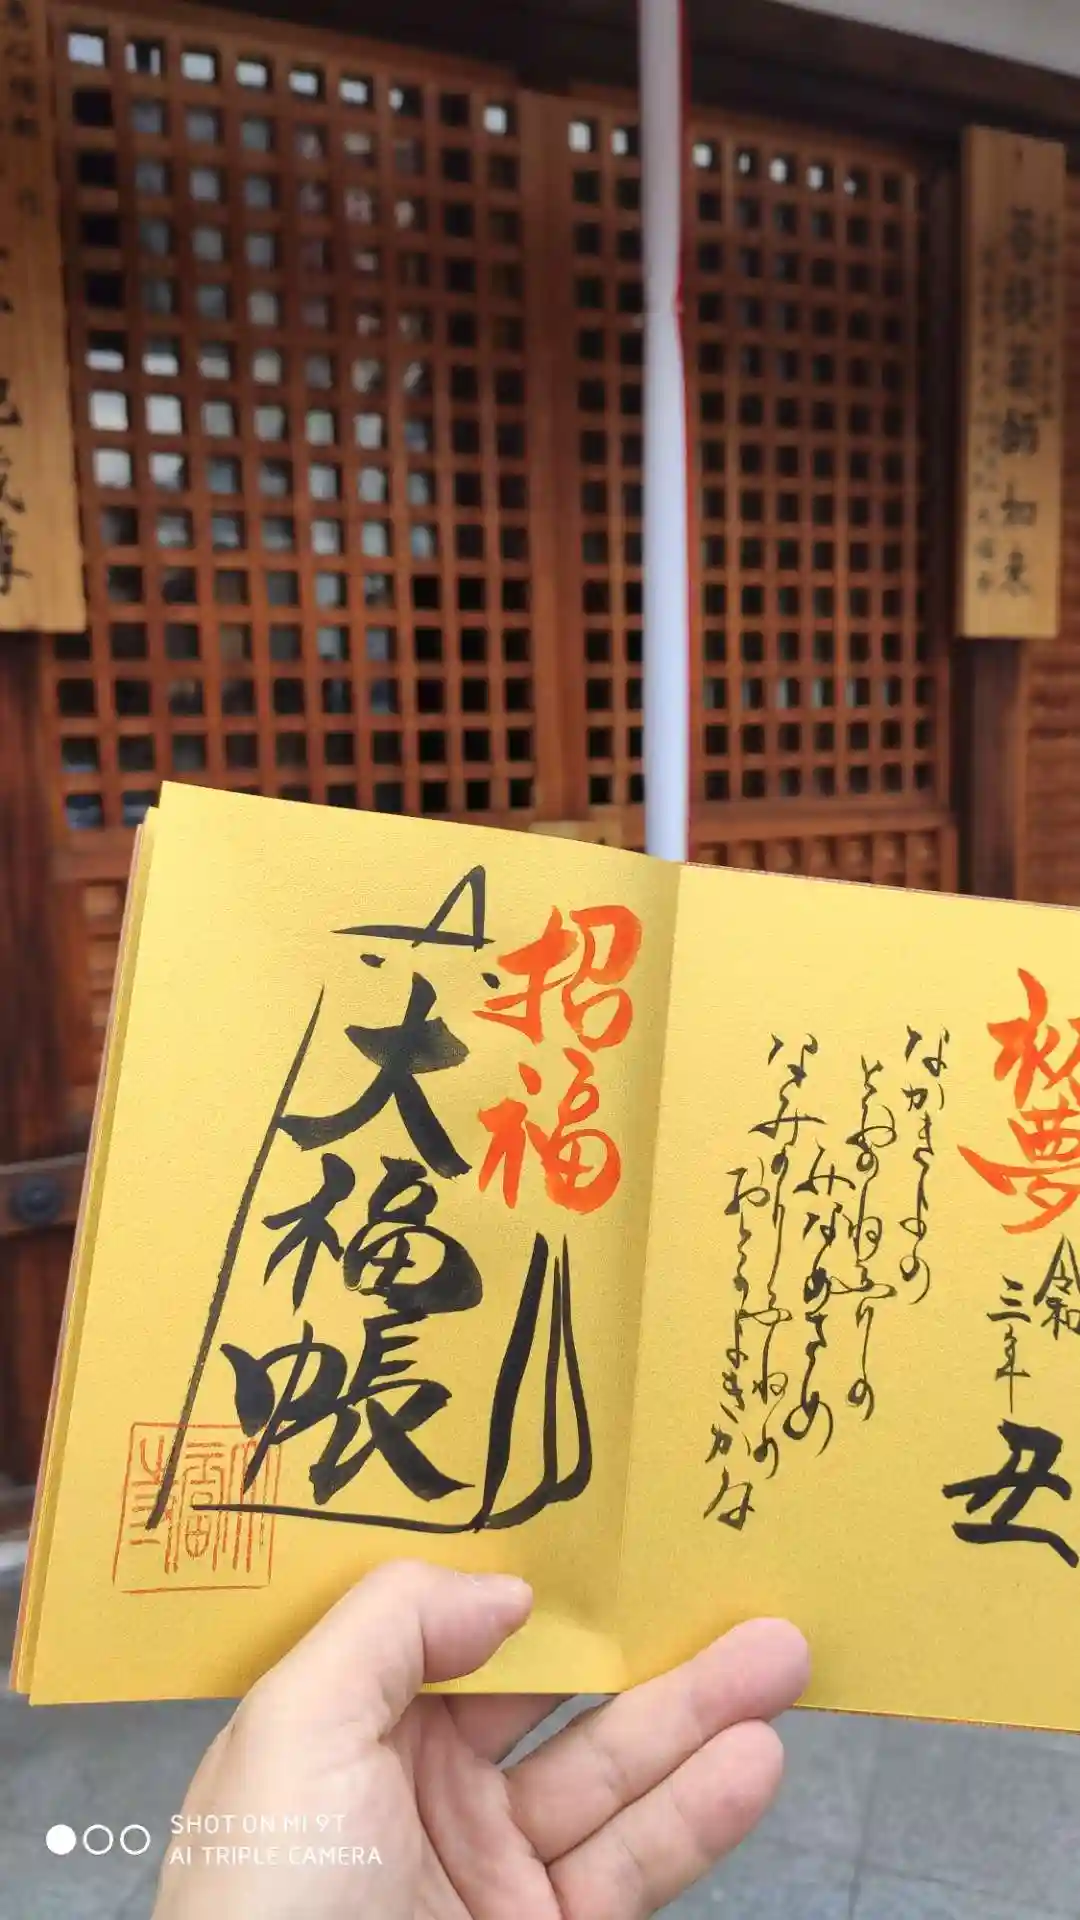 菩提薬師如来
初夢
令和
三年
丑
なかきよの
とおのねふりの
みなめさめ
なみのりふねの
おとのよきかな
招福
大福帳
大福寺
SHOT ON MI 9T
AI TRIPLE CAMERA